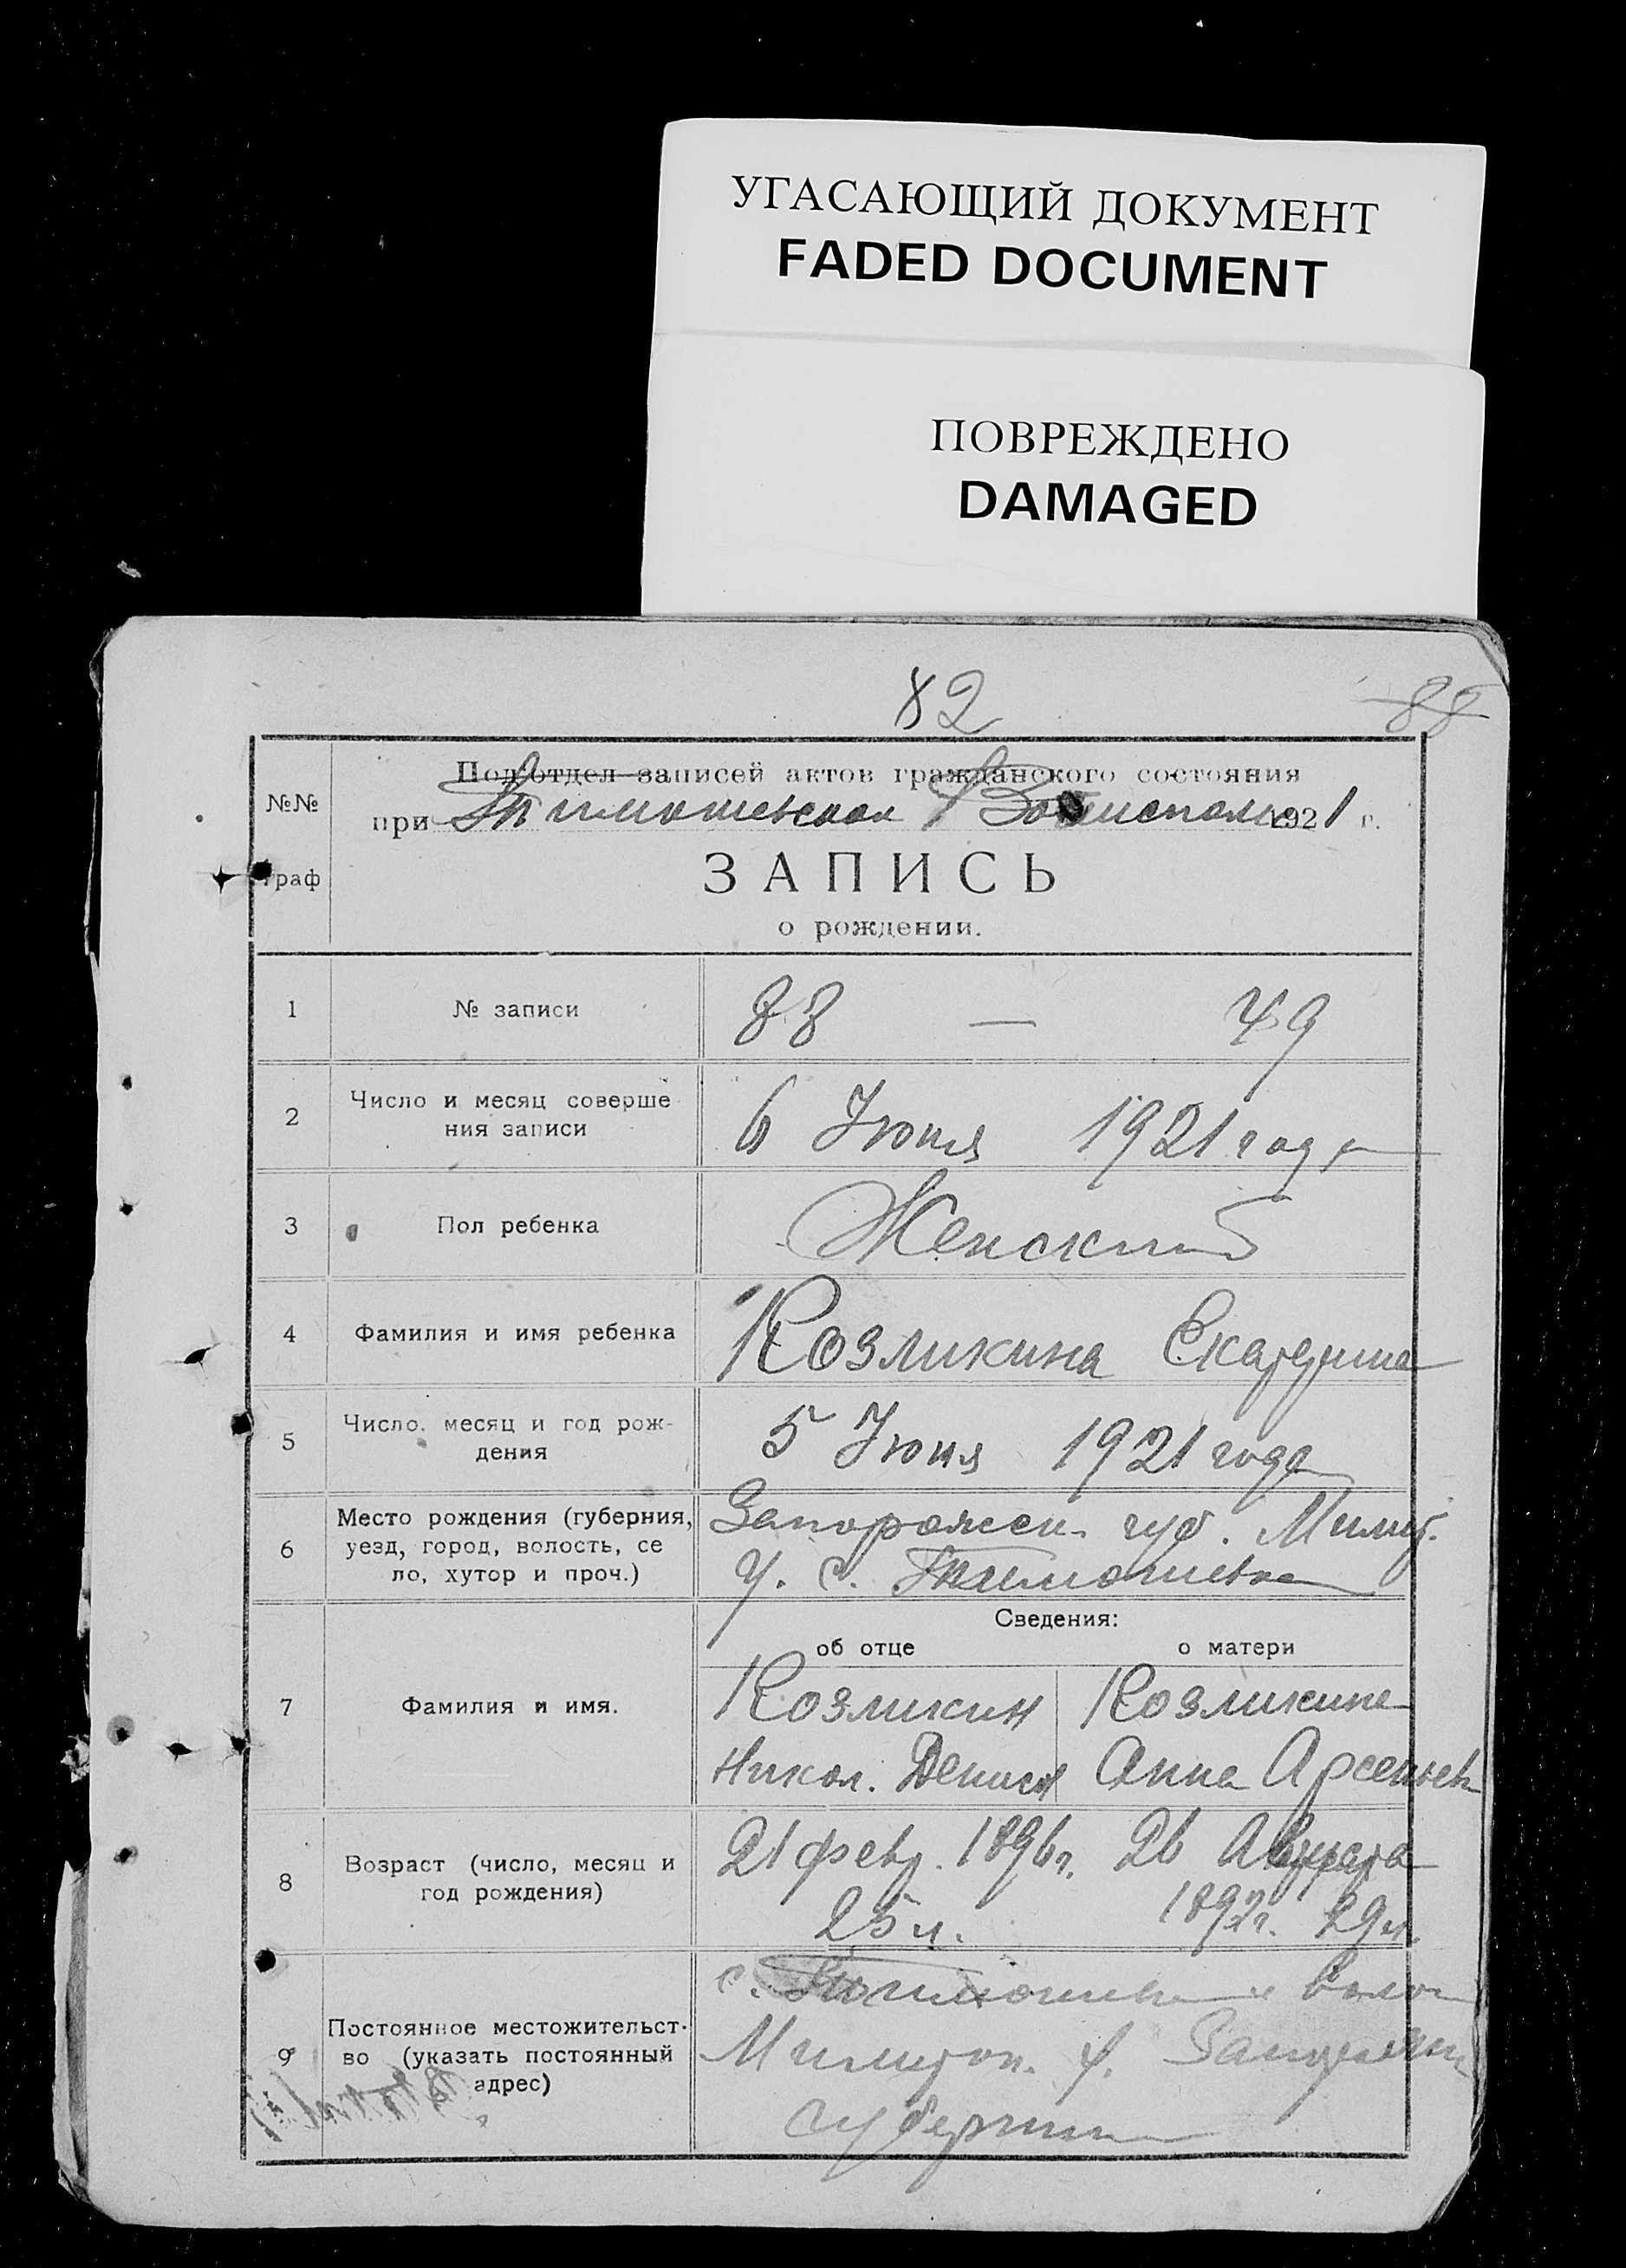 УГАСАЮЩИЙ ДОКУМЕНТ
FADED DOCUMENT
ПОВРЕЖДЕНО
DAMAGED
82
88
№№
граф
Подотдел записей актов гражданского состояния
при Тимошевском Волисполк 1921 г.
ЗАПИСЬ
о рождении.
1 № записи 88 — 49
2 Число и месяц соверше
ния записи
6 Июня 1921 года
3 Пол ребенка Женский
4 Фамилия и имя ребенка Козликина Екатерина
5 Число, месяц и год рож-
дения
5 Июня 1921 года
6 Место рождения (губерния,
уезд, город, волость, се
ло, хутор и проч.)
Запорожск. губ. Мелит.
у. с. Тимошевка
Сведения:
об отце о матери
7 Фамилия и имя.
Козликин
Никол. Денисов
Козликина
Анна Арсеньев
8 Возраст (число, месяц и
год рождения)
21 февр. 1896 г.
25 л.
26 Августа
1892 г. 29 л.
9 Постоянное местожительст-
во (указать постоянный
адрес)
с. Тимошевка волос
Мелитоп. у. Запорожск
губернии